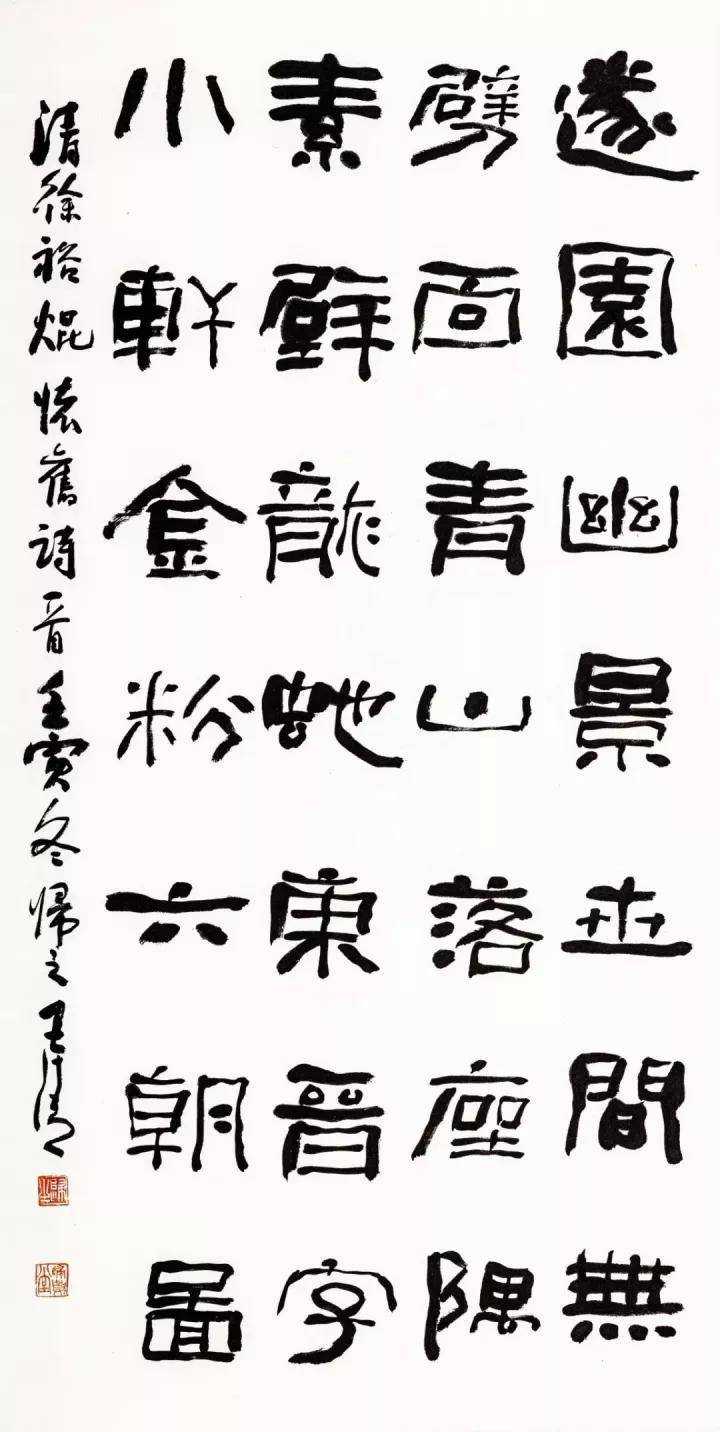 遂園幽景世間無
劈面青山落座隅
素壁龍蛇東晉字
小軒金粉六朝圖
清徐裕焜懷舊詩一首壬寅冬歸之